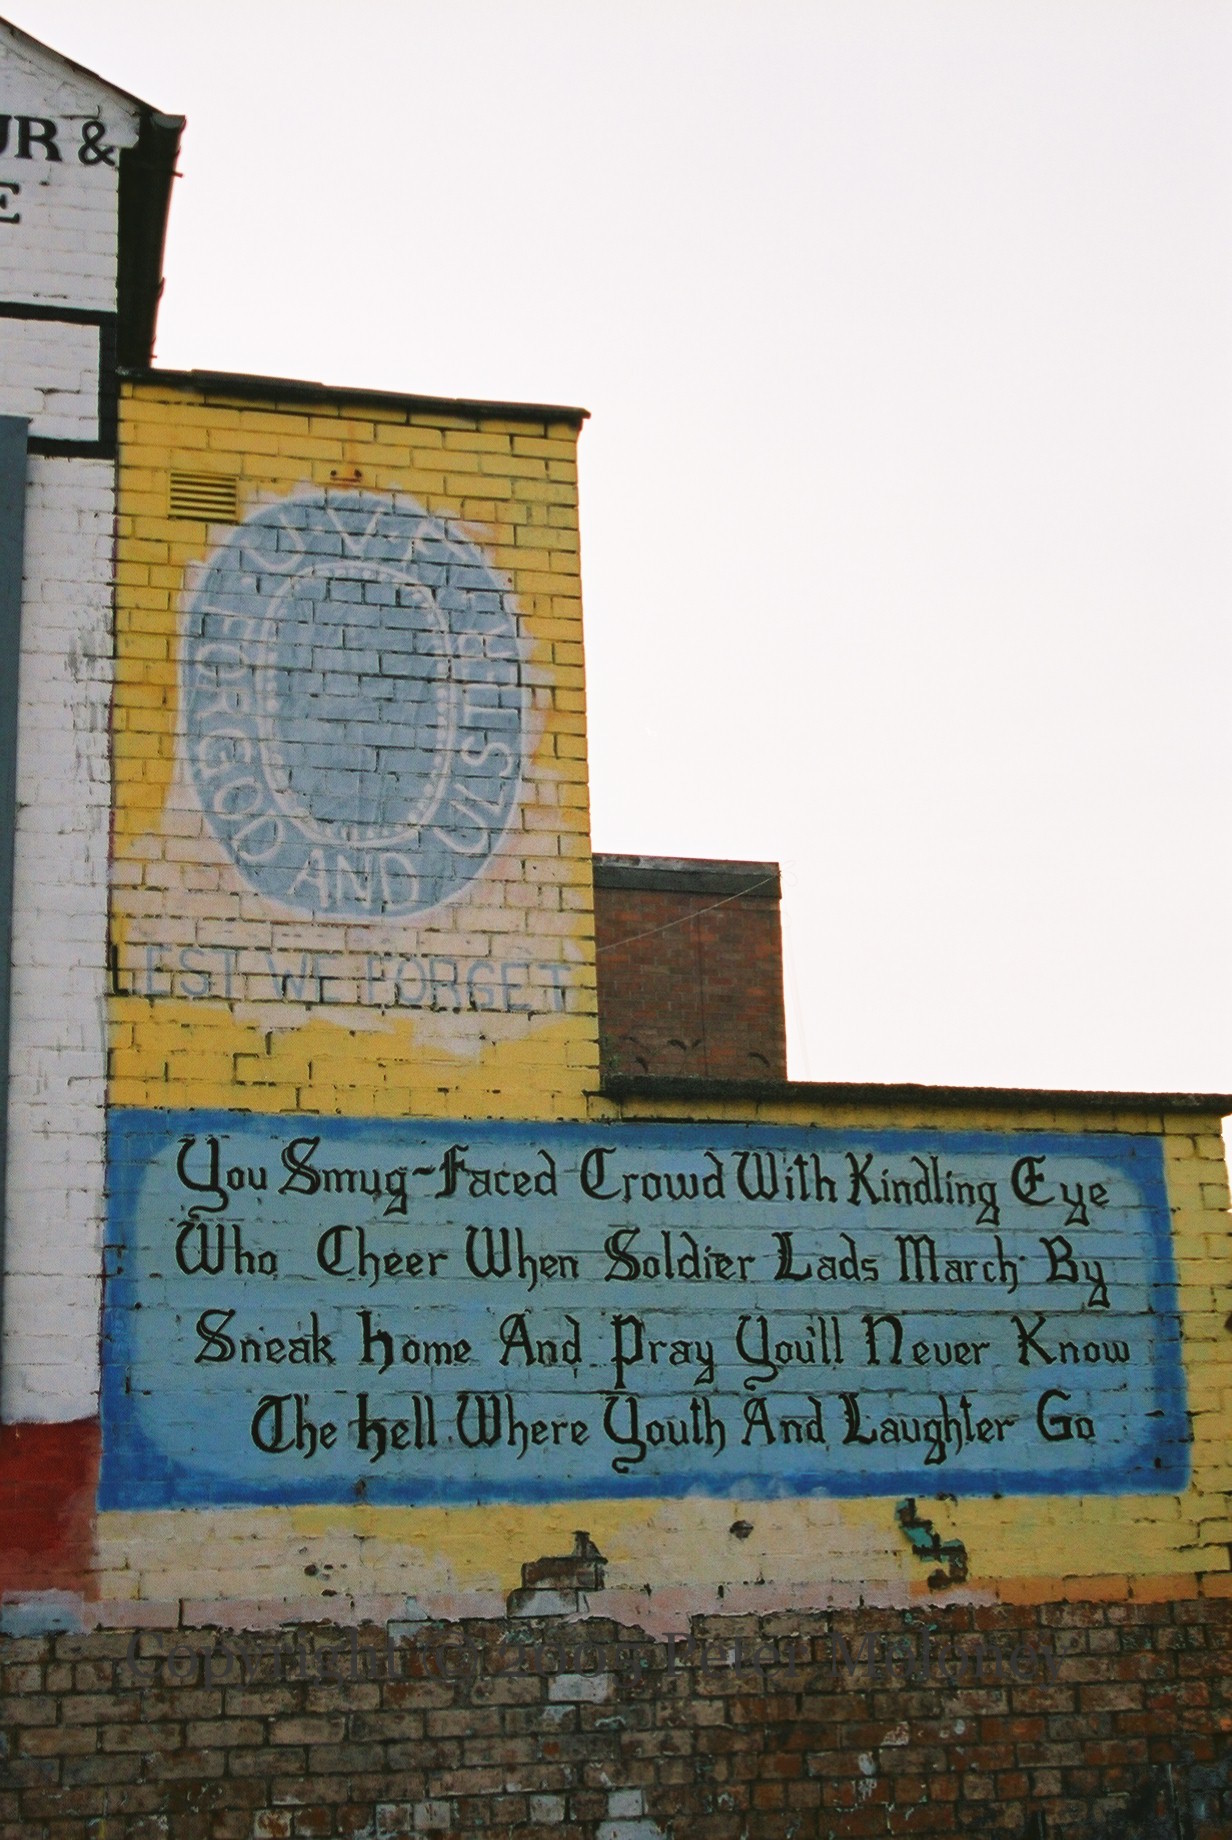 UR &
E
U.V.F.
FOR GOD AND ULSTER
LEST WE FORGET
You Smug-Faced Crowd With Kindling Eye
Who Cheer When Soldier Lads March By
Sneak home And Pray You'll Never Know
The hell Where Youth And Laughter Go
Copyright © 2005 Peter Moloney